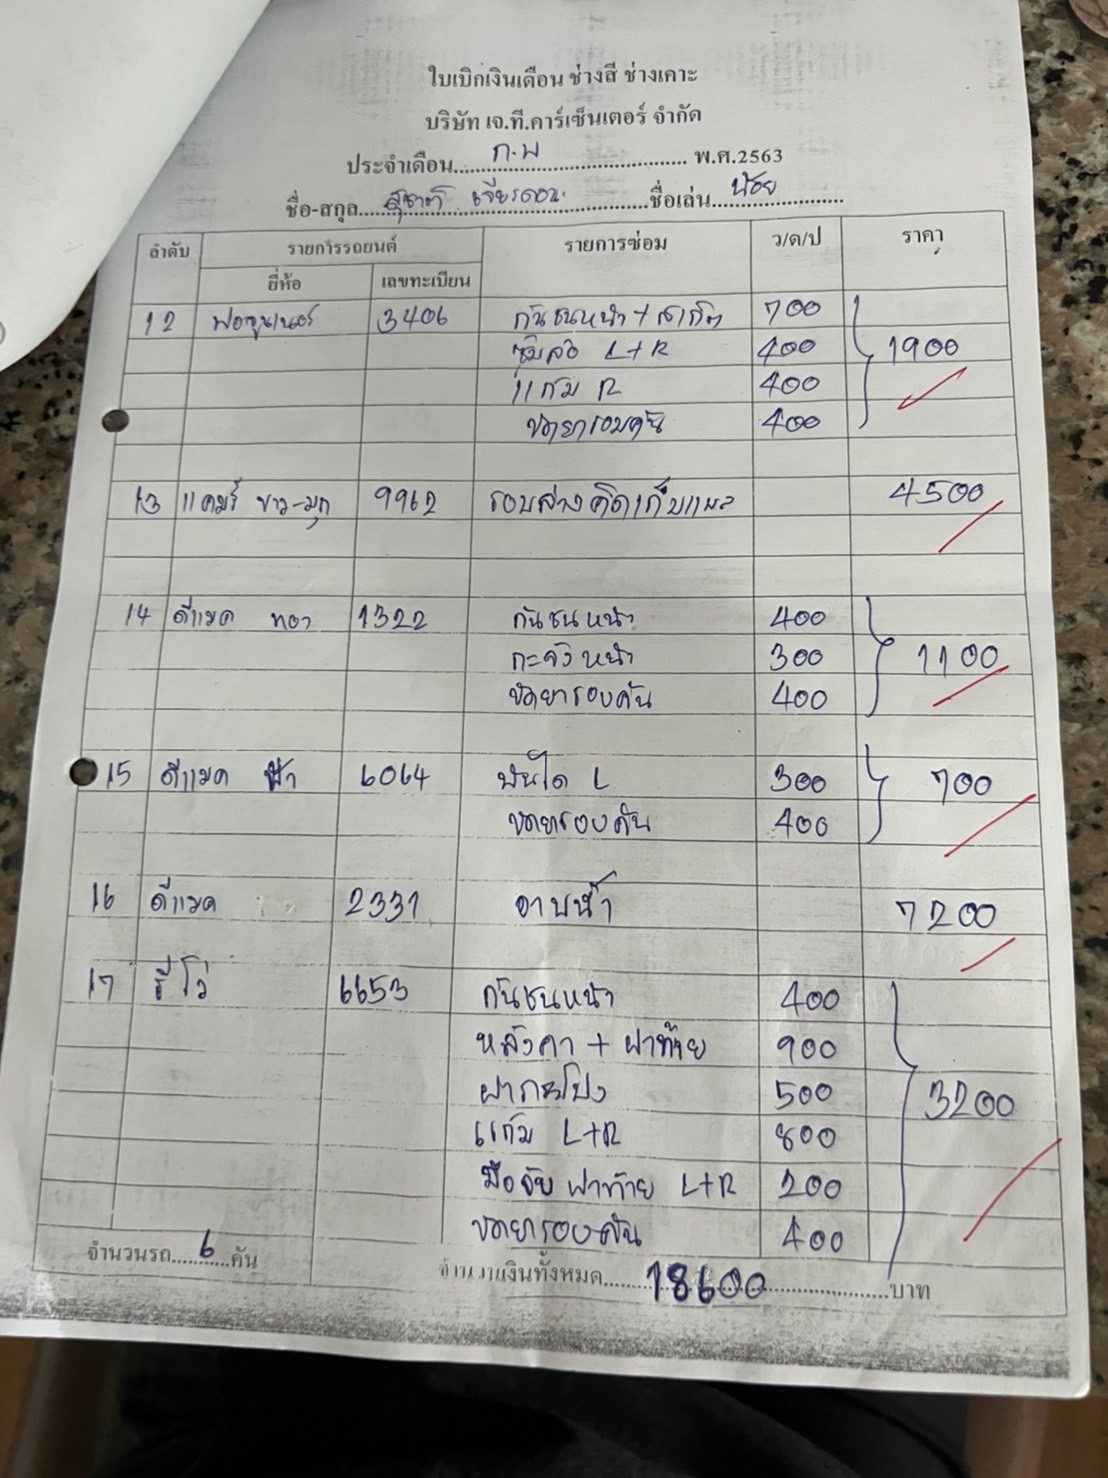 ใบเบิกเงินเดือน ช่างสี ช่างเคาะ
บริษัท เจ.ที.คาร์เซ็นเตอร์ จำกัด
ประจำเดือน ก.พ พ.ศ.2563
ชื่อ-สกุล สุชาติ ชื่อเล่น น้อย
ลำดับ รายการรถยนต์ รายการซ่อม ว/ด/ป ราคา
ยี่ห้อ เลขทะเบียน
12 ฟอจูนเนอร์ 3406 กันชนหน้า + 700
ซุ้มล้อ L+R 400 1900
แก้ม R 400
ขัดยารอบคัน 400
13 แคมรี่ ขาว-มุก 9962 รอบล่างคิดเก็บแผล 4500
14 ดีแมค ทอง 1322 กันชนหน้า 400
กะจังหน้า 300 1100
ขัดยารอบคัน 400
15 ดีแมค ฟ้า 6064 บันได L 300 700
ขัดยารอบคัน 400
16 ดีแมค 2331 อาบน้ำ 7200
17 รีโว่ 6653 กันชนหน้า 400
หลังคา + ฝาท้าย 900
ฝากระโปง 500 3200
แก้ม L+R 800
มือจับ ฝาท้าย L+R 200
ขัดยารอบคัน 400
จำนวนรถ 6 คัน จำนวนเงินทั้งหมด 18600 บาท